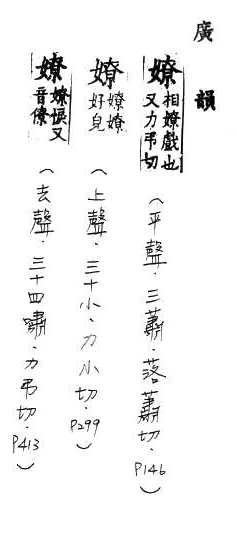 廣韻
嫽 相嫽戲也又力弔切
（平聲．三蕭．落蕭切．P146）
嫽 嫽嫽好皃
（上聲．三十小．力小切．P299）
嫽 嫽悵又音僚
（去聲．三十四嘯．力弔切．P413）